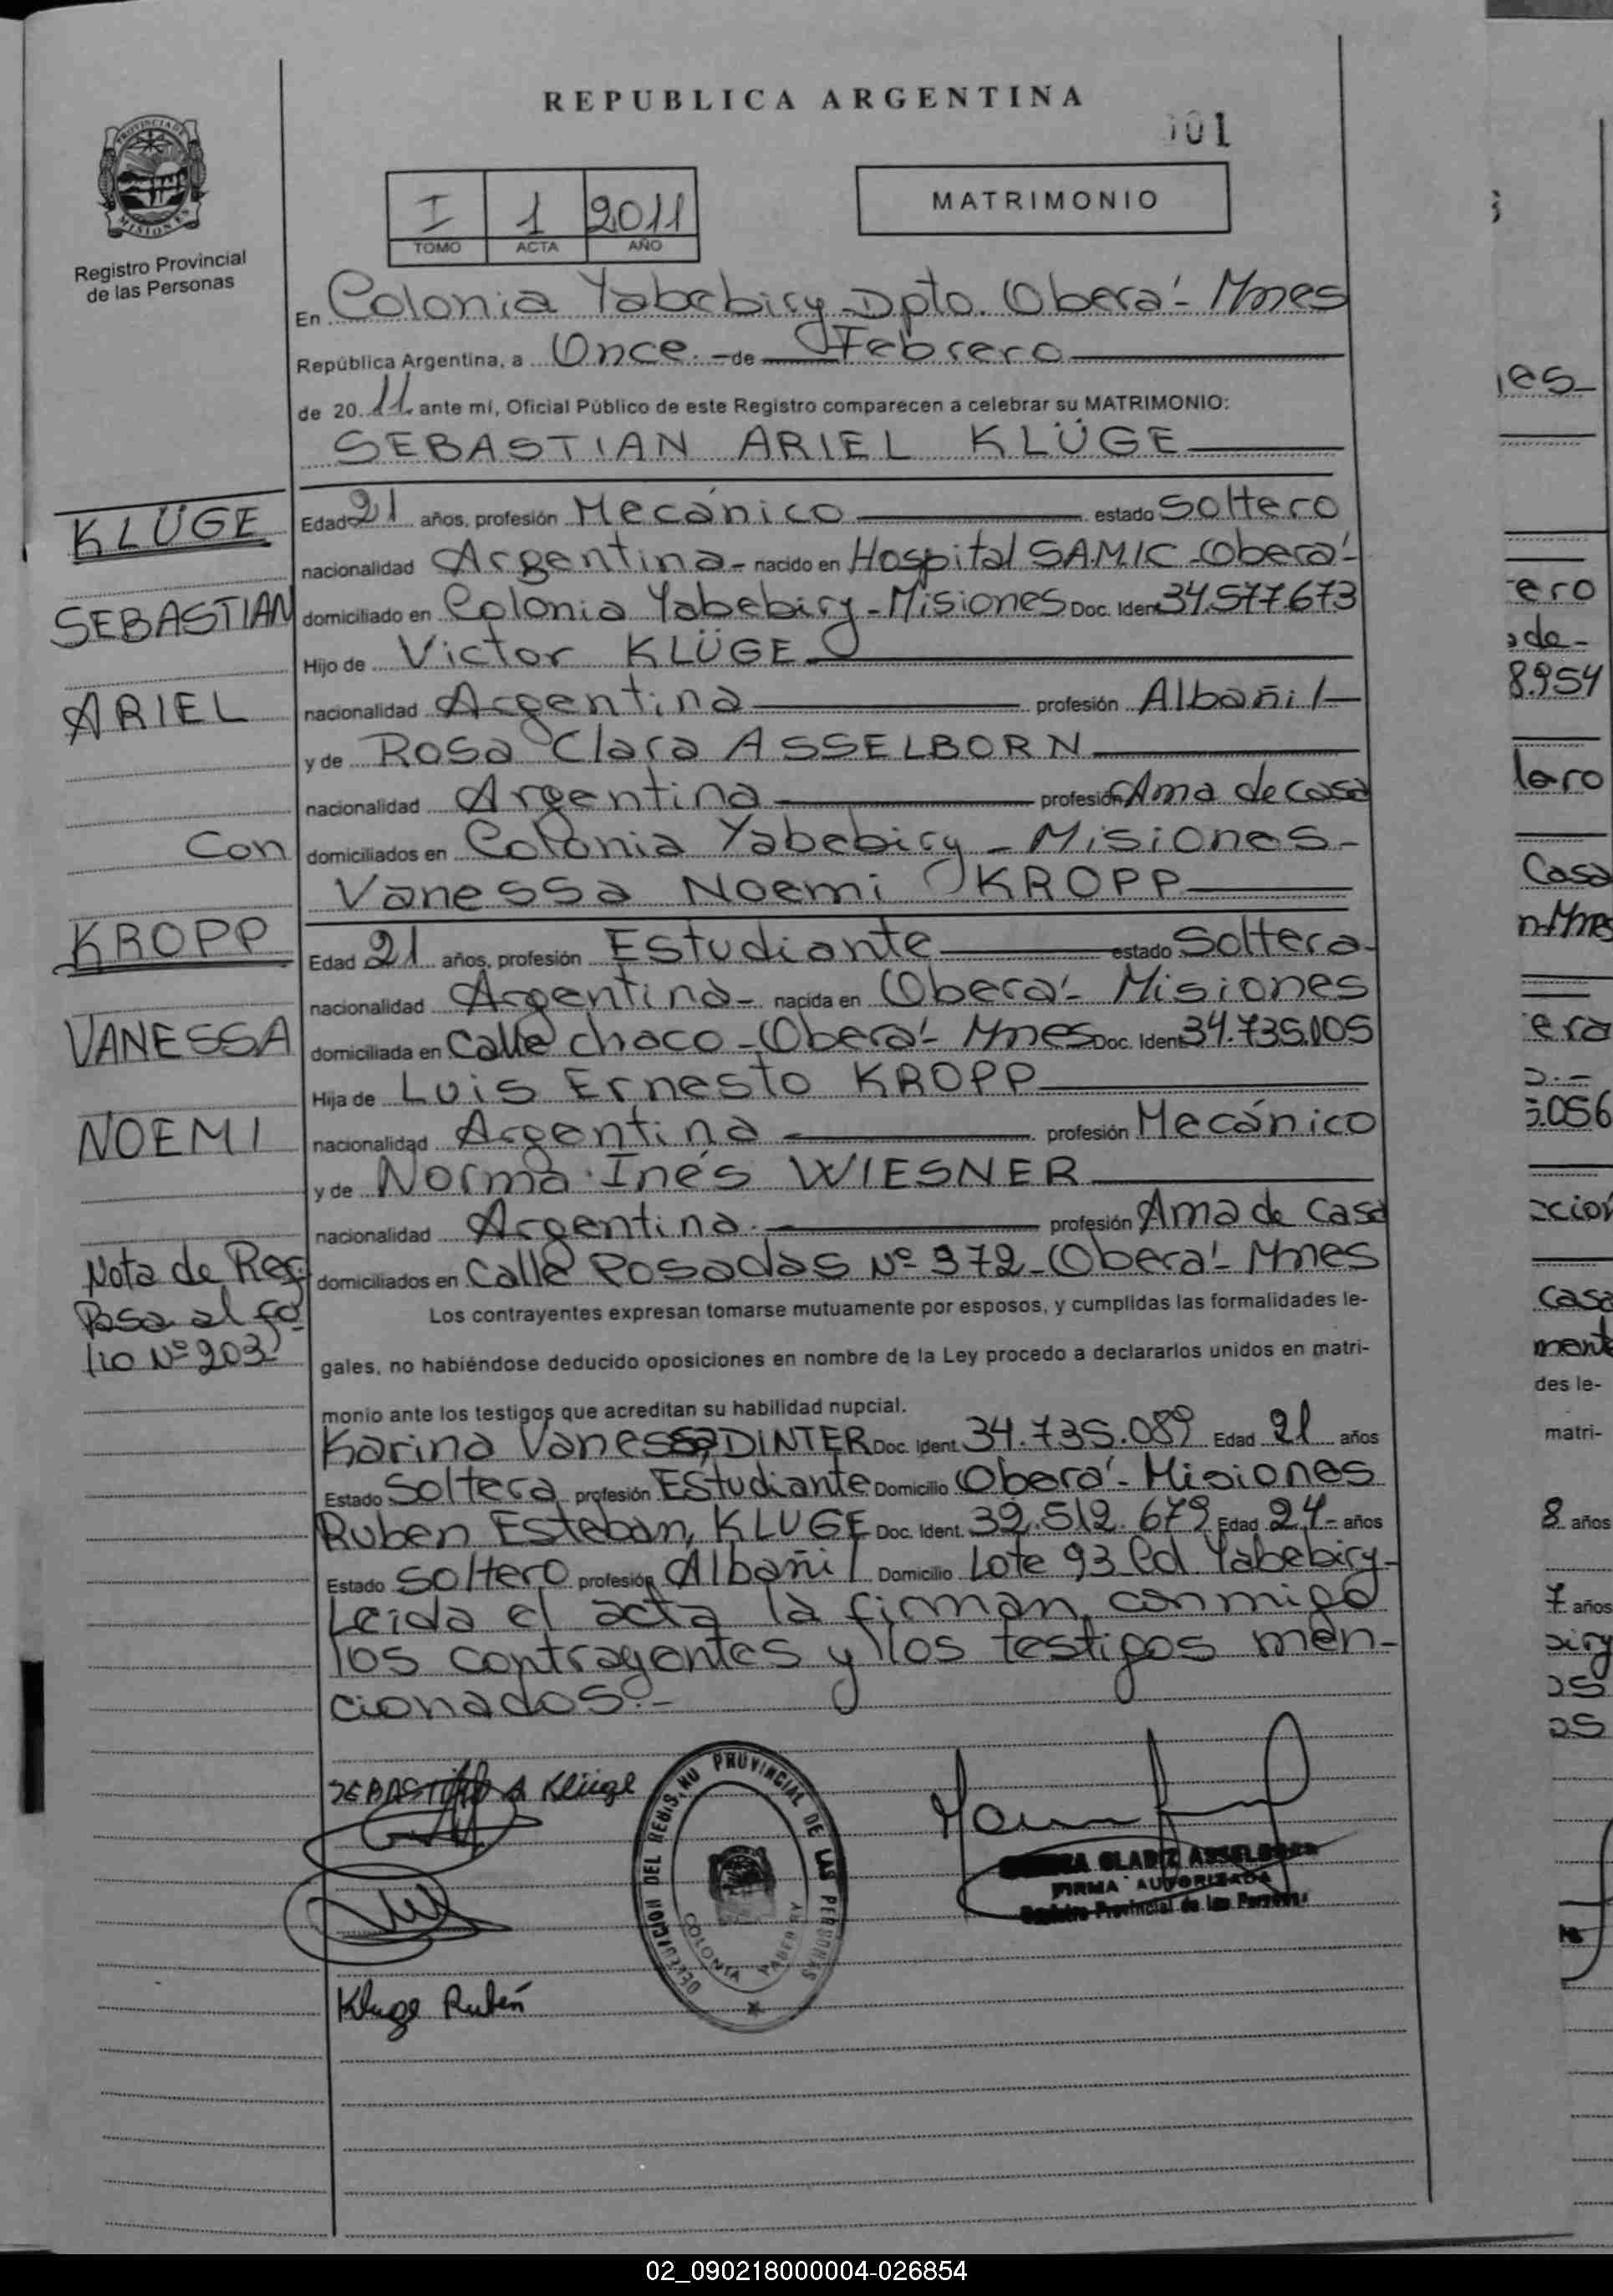 REPUBLICA ARGENTINA
001
PROVINCIA DE MISIONES
Registro Provincial
de las Personas
I 1 2011
TOMO ACTA AÑO
MATRIMONIO
En Colonia Yabebiry - Dpto. Oberá - Mnes
República Argentina, a Once. - de Febrero
de 20 11 ante mí, Oficial Público de este Registro comparecen a celebrar su MATRIMONIO:
SEBASTIAN ARIEL KLÜGE
KLÜGE
SEBASTIAN
ARIEL
Con
KROPP
VANESSA
NOEMI
Nota de Ref.
Pasa al fo-
lio Nº 203
Edad 21 años, profesión Mecánico estado Soltero
nacionalidad Argentina - nacido en Hospital SAMIC - Oberá -
domiciliado en Colonia Yabebiry - Misiones Doc. Ident. 34.577.673
Hijo de Victor KLÜGE
nacionalidad Argentina profesión Albañil
y de Rosa Clara ASSELBORN
nacionalidad Argentina profesión Ama de casa
domiciliados en Colonia Yabebiry - Misiones -
Vanessa Noemi KROPP
Edad 21 años, profesión Estudiante estado Soltera -
nacionalidad Argentina - nacida en Oberá - Misiones
domiciliada en Calle Chaco - Oberá - Mnes Doc. Ident. 34.735.105
Hija de Luis Ernesto KROPP
nacionalidad Argentina profesión Mecánico
y de Norma Inés WIESNER
nacionalidad Argentina. profesión Ama de Casa
domiciliados en Calle Posadas Nº 972 - Oberá - Mnes
Los contrayentes expresan tomarse mutuamente por esposos, y cumplidas las formalidades le-
gales, no habiéndose deducido oposiciones en nombre de la Ley procedo a declararlos unidos en matri-
monio ante los testigos que acreditan su habilidad nupcial.
Karina Vanessa, DINTER Doc. Ident. 34.735.089 Edad 21 años
Estado Soltera profesión Estudiante Domicilio Oberá - Misiones
Ruben Esteban, KLUGE Doc. Ident. 32.512.679 Edad 24 - años
Estado Soltero profesión Albañil Domicilio Lote 93 Col Yabebiry -
Leida el acta la firman, conmigo
los contrayentes y los testigos men-
cionados. -
SEBASTIAN A Klüge
DELEGACION DEL REGISTRO PROVINCIAL DE LAS PERSONAS
COLONIA YABEBIRY
GLADIZ ASSELBORN
FIRMA AUTORIZADA
Registro Provincial de las Personas
Kluge Rubén
02_090218000004-026854